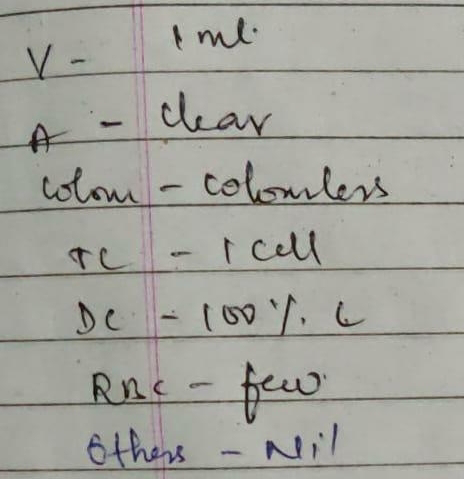 V - 1 ml.
A - Clear
Colour - Colourless
TC - 1 Cell
DC - 100 %. L
RBC - few.
Others - Nil